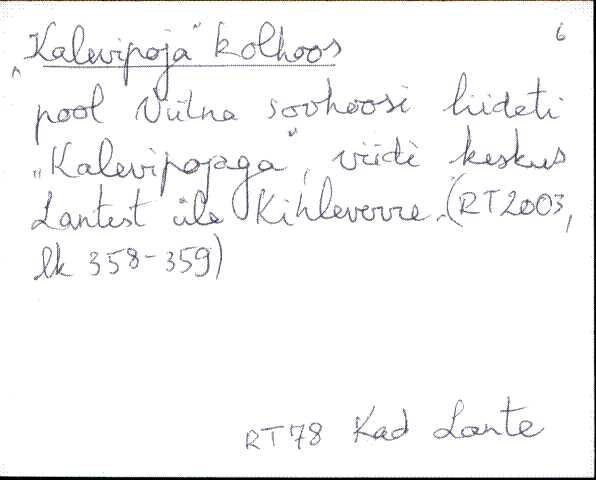 6
„Kalevipoja" kolhoos
pool Viitna sovhoosi liideti
„Kalevipojaga", viidi keskus
Lantest üle Kihlevere. (RT2003,
lk 358-359)
RT78 Kad Lante